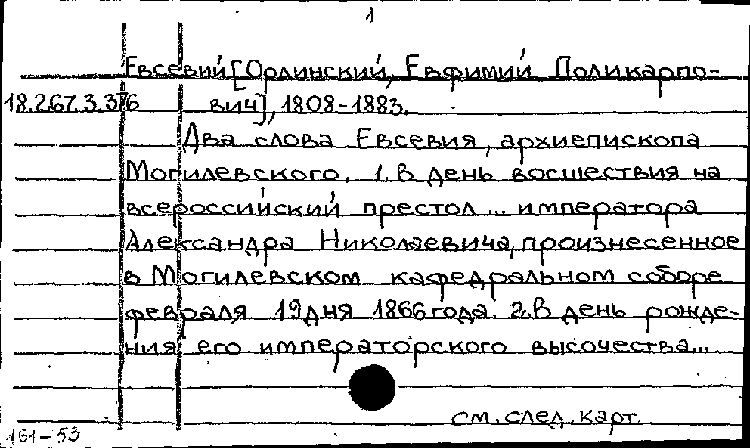 1
Евсевий [Орлинский, Евфимий Поликарпо-
18.267.3.376 вич], 1808-1883.
Два слова Евсевия, архиепископа
Могилевского. 1. В день восшествия на
всероссийский престол... императора
Александра Николаевича, произнесенное
в Могилевском кафедральном соборе
февраля 19 дня 1866 года. 2. В день рожде-
ния его императорского высочества...
см. след. карт.
161-53